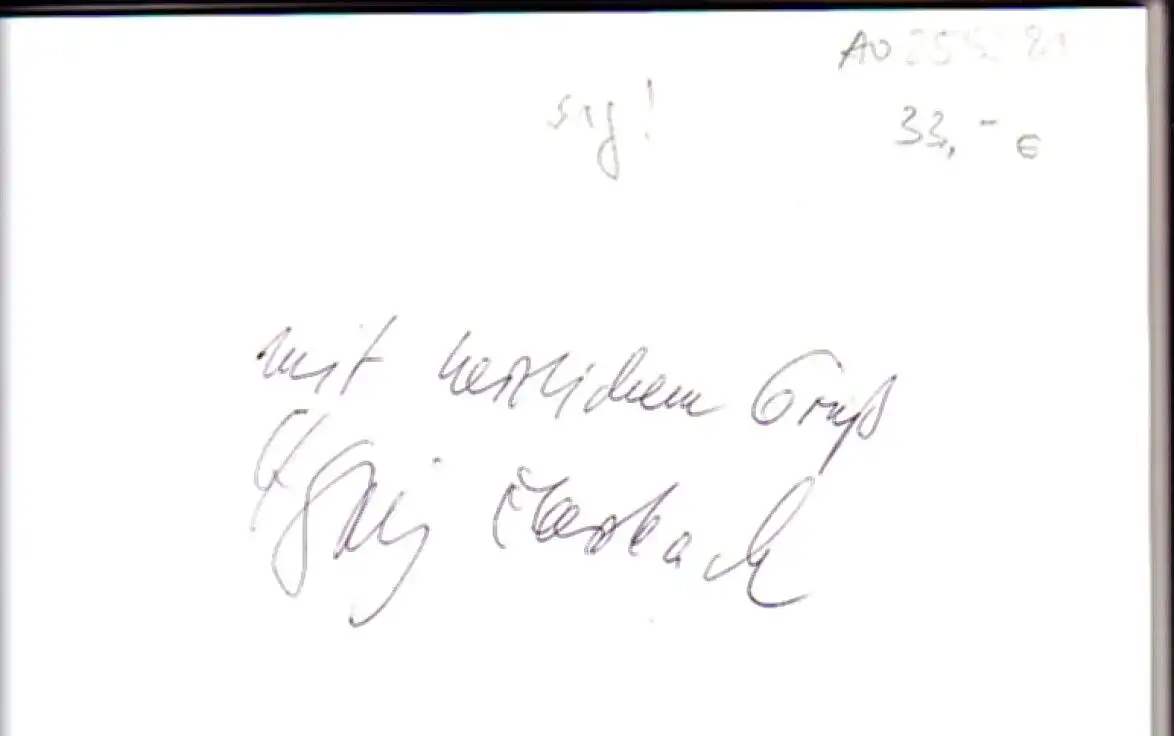 AO
sig!
33,- €
mit herzlichem Gruß
Eberbach